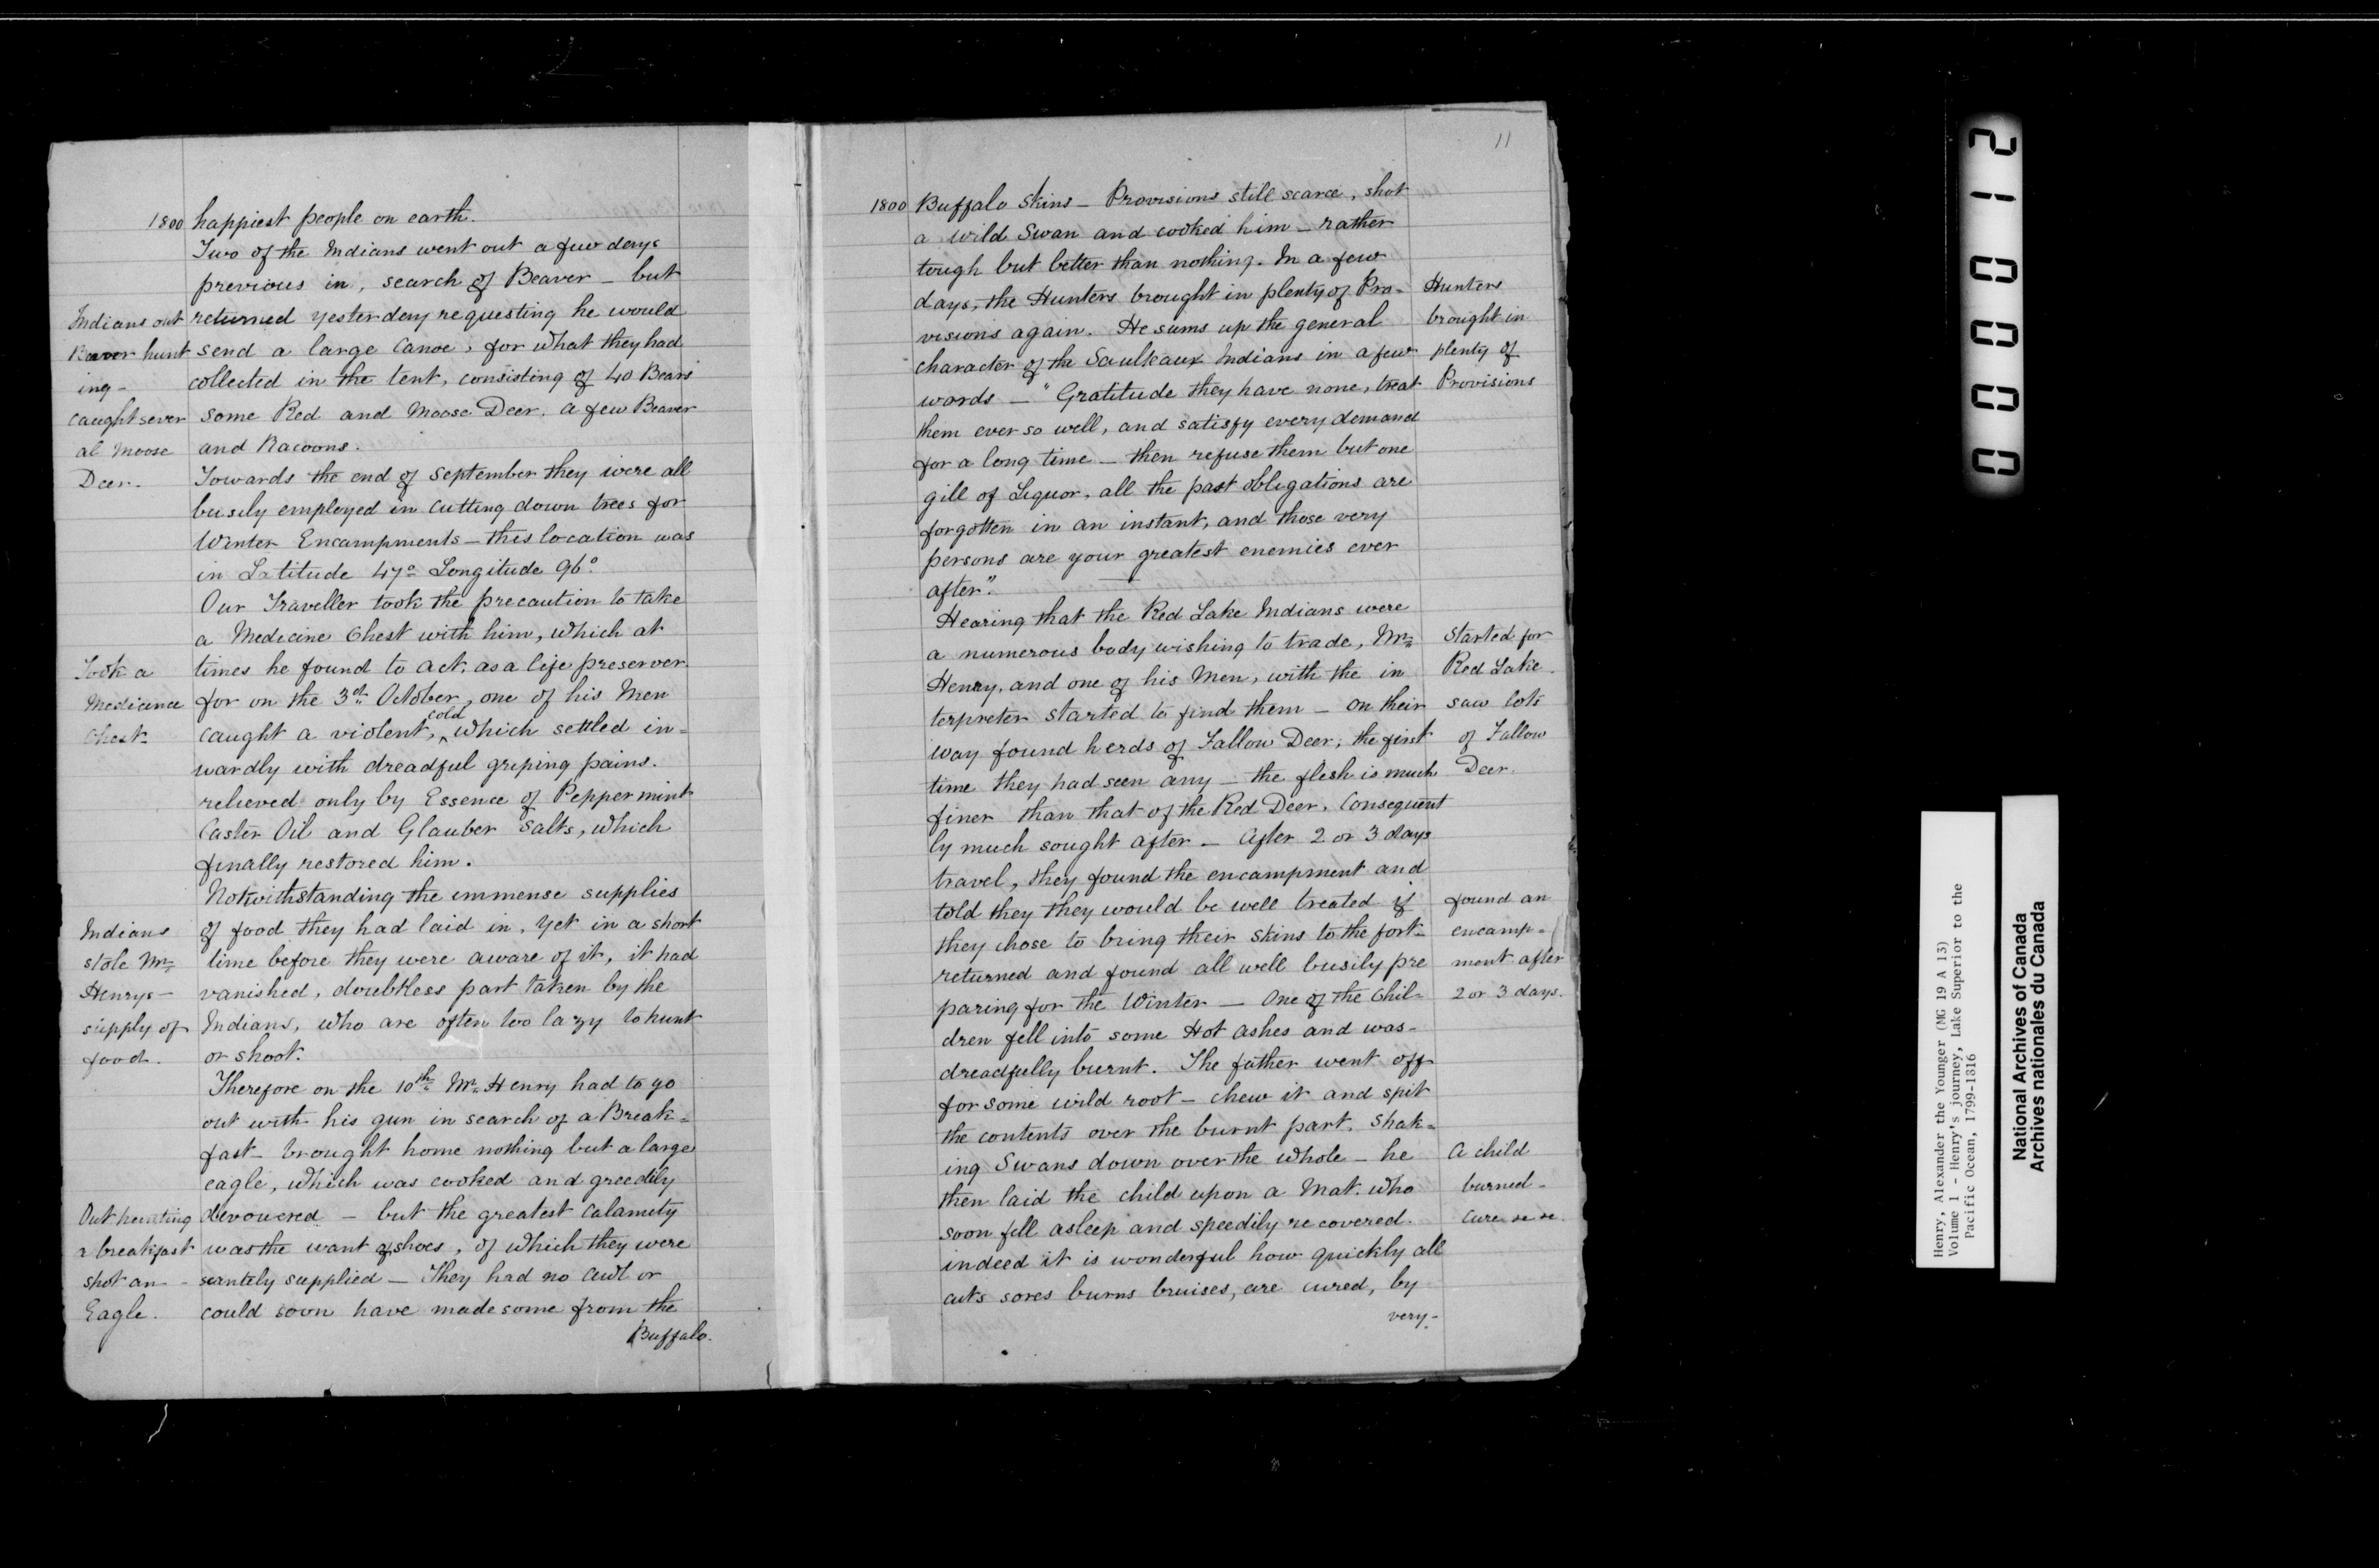 1800 happiest people on earth.
Two of the Indians went out a few days
previous in, search of Beaver – but
Indians out returned yesterday requesting he would
Beaver hunt send a large Canoe, for what they had
ing – collected in the tent, consisting of 40 Bears
caught sever some Red and Moose Deer, a few Beaver
al Moose and Racoons.
Deer. Towards the end of September they were all
busily employed in cutting down trees for
Winter Encampments – this location was
in Latitude 47° Longitude 96°
Our Traveller took the precaution to take
a Medicine Chest with him, which at
Took a times he found to act, as a life preserver
Medicine for on the 3rd October, one of his Men
Chest – caught a violent, ^cold which settled in=
wardly with dreadful griping pains.
relieved only by Essence of Peppermint
Caster Oil and Glauber Salts, which
finally restored him.
Notwithstanding the immense supplies
Indians of food they had laid in, yet in a short
stole Mr. time before they were aware of it, it had
Henrys – vanished, doubtless part taken by the
supply of Indians, who are often too lazy to hunt
food. or shoot.
Therefore on the 10th Mr. Henry had to go
out with his gun in search of a Break=
fast – brought home nothing but a large
eagle, which was cooked and greedily
Out hunting devoured – but the greatest calamity
a breakfast was the want of shoes, of which they were
shot an – scantely supplied – They had no awl or
Eagle. could soon have made some from the
Buffalo.
11
1800 Buffalo Skins – Provisions still scarce, shot
a wild Swan and cooked him – rather
tough but better than nothing. In a few
days, the Hunters brought in plenty of Pro- Hunters
visions again. He sums up the general brought in
character of the Saulteaux Indians in a few plenty of
words – "Gratitude they have none, treat Provisions
them ever so well, and satisfy every demand
for a long time – then refuse them but one
gill of Liquor, all the past obligations are
forgotten in an instant, and those very
persons are your greatest enemies ever
after".
Hearing that the Red Lake Indians were
a numerous body wishing to trade, Mr. Started for
Henry, and one of his Men, with the in Red Lake.
terpreter started to find them – on their saw lots
way found herds of Fallow Deer, the first of Fallow
time they had seen any – the flesh is much Deer.
finer than that of the Red Deer, Consequent
ly much sought after – After 2 or 3 days
travel, they found the encampment and
told they they would be well treated if found an
they chose to bring their Skins to the fort – encamp=
returned and found all well busily pre ment after
paring for the Winter – One of the Chil- 2 or 3 days.
dren fell into some Hot ashes and was –
dreadfully burnt. The father went off
for some wild root – chew it and spit
the contents over the burnt part, Shak=
ing Swans down over the whole – he A child
then laid the child upon a Mat. who burned –
soon fell asleep and speedily recovered. Cure &c &c.
indeed it is wonderful how quickly all
cuts sores burns bruises, are cured, by
very –
000012
Henry, Alexander the Younger (MG 19 A 13)
Volume 1 - Henry's journey, Lake Superior to the
Pacific Ocean, 1799-1816
National Archives of Canada
Archives nationales du Canada